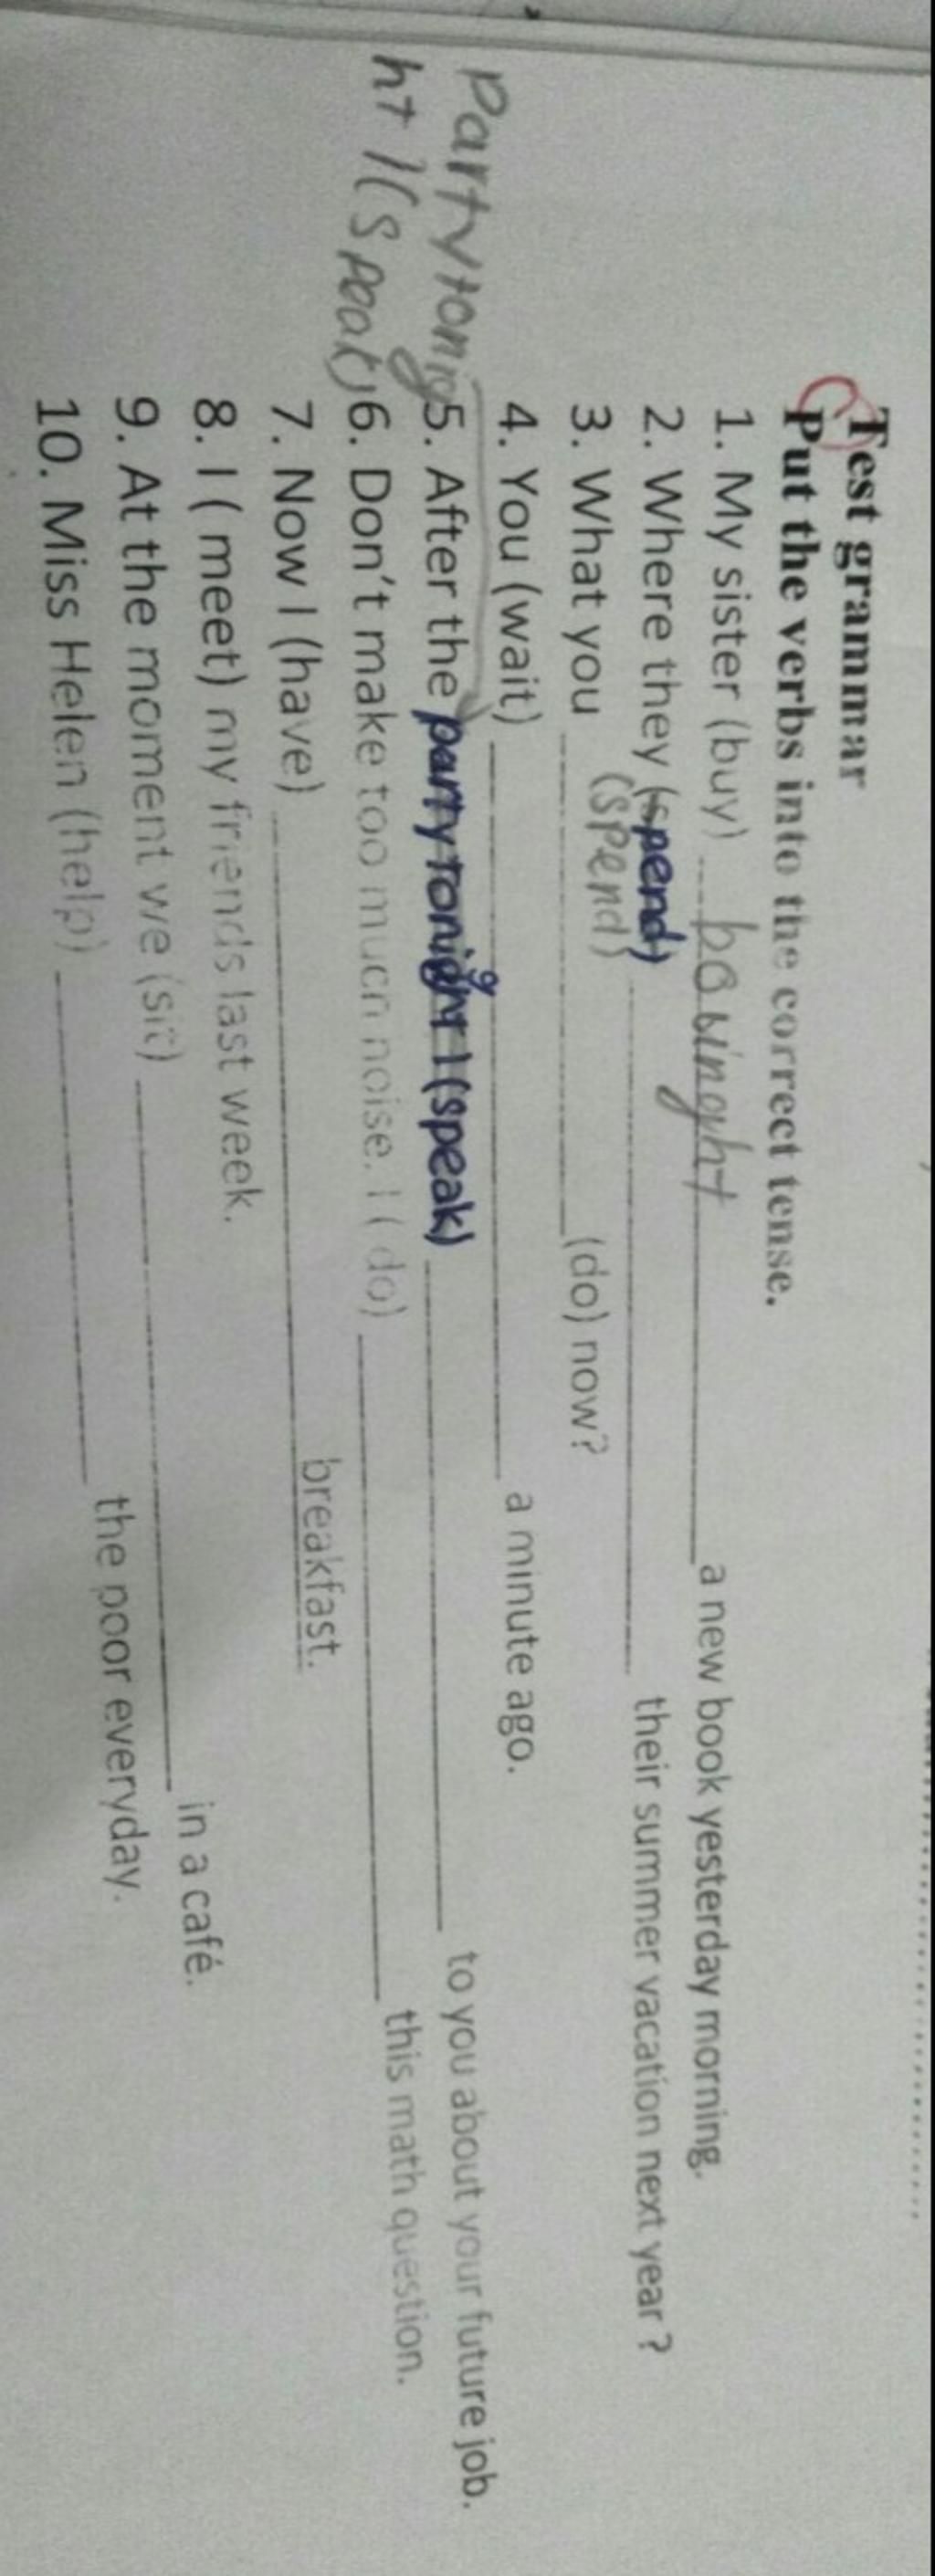 Test grammar
Put the verbs into the correct tense.
1. My sister (buy) ______ a new book yesterday morning.
2. Where they (spend) ______ their summer vacation next year ?
(spend)
3. What you ______ (do) now?
4. You (wait) ______ a minute ago.
5. After the party tonight I (speak) ______ to you about your future job.
party tonig
ht I (speak)
6. Don't make too much noise. I ( do) ______ this math question.
7. Now I (have) ______ breakfast.
8. I ( meet) my friends last week.
9. At the moment we (sit) ______ in a café.
10. Miss Helen (help) ______ the poor everyday.